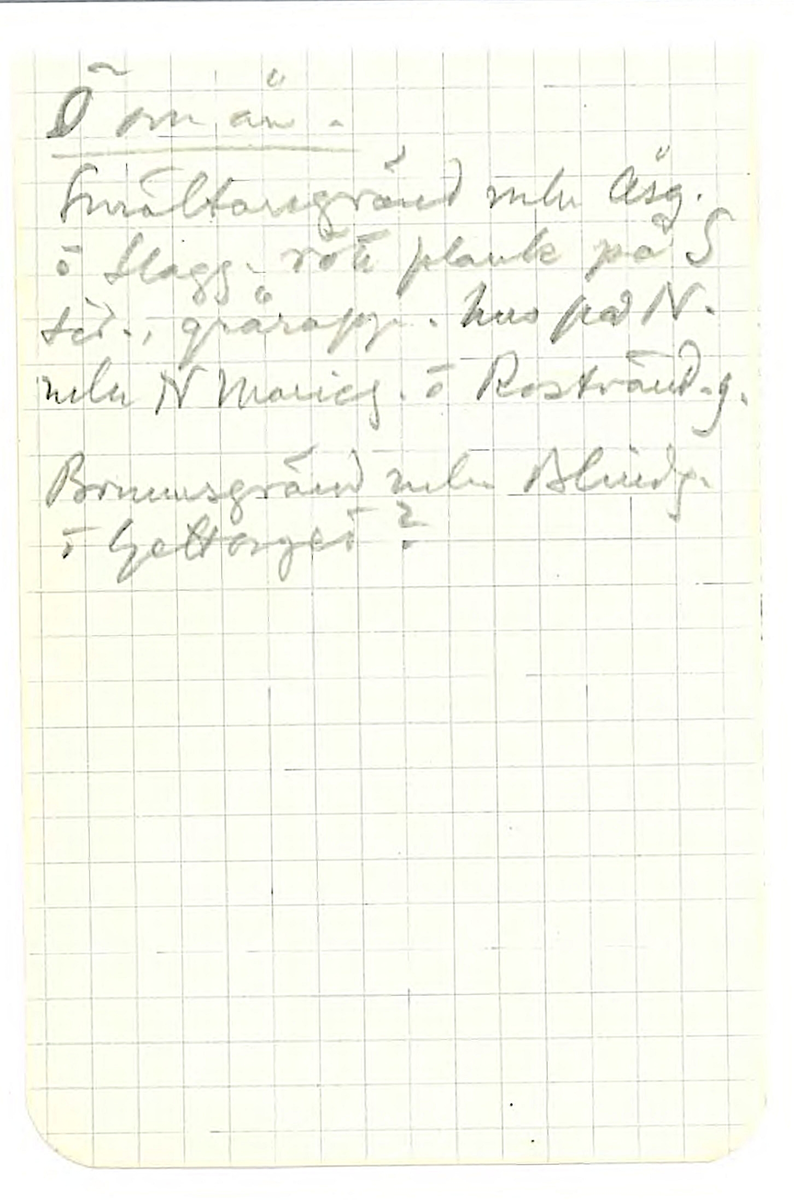 Ö om ån.
Smältargränd mln Åsg.
o Slagg. rött plank på S
sid., gråråpp. hus på N.
mln N Marieg. o Rostvänd.g.
Brunnsgränd mln Blindg.
o Gettorget?